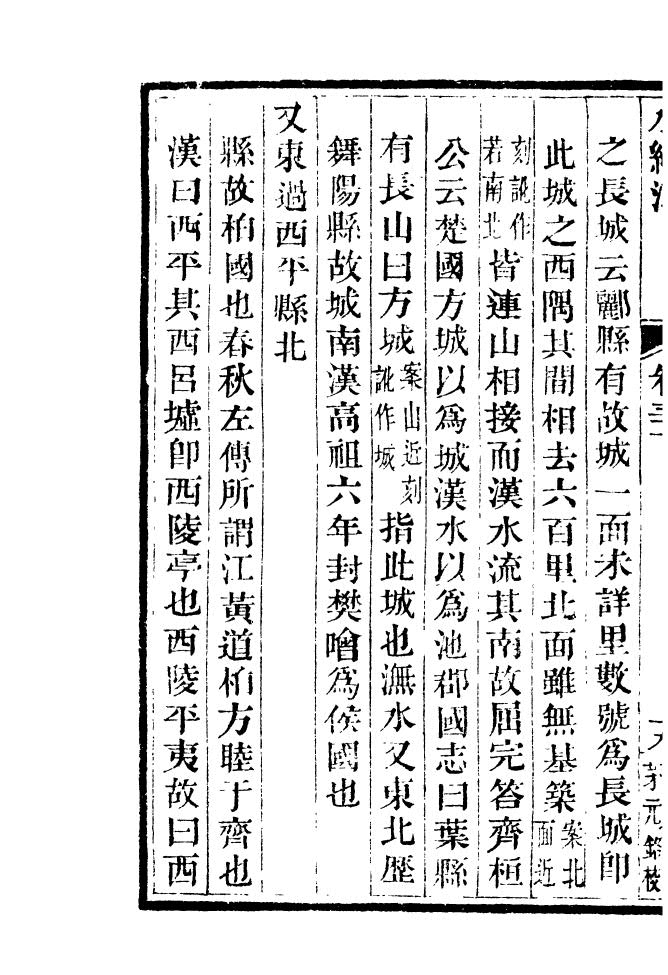 水經注 卷三十一 十九 茅元銘校
之長城云酈縣有故城一面未詳里數號爲長城卽
此城之西隅其間相去六百里北面雖無基築案北面近
刻訛作若南北皆連山相接而漢水流其南故屈完答齊桓
公云楚國方城以爲城漢水以爲池郡國志曰葉縣
有長山曰方城案山近刻訛作城指此城也潕水又東北歷
舞陽縣故城南漢高祖六年封樊噲爲侯國也
又東過西平縣北
縣故柏國也春秋左傳所謂江黃道柏方睦于齊也
漢曰西平其西呂墟卽西陵亭也西陵平夷故曰西